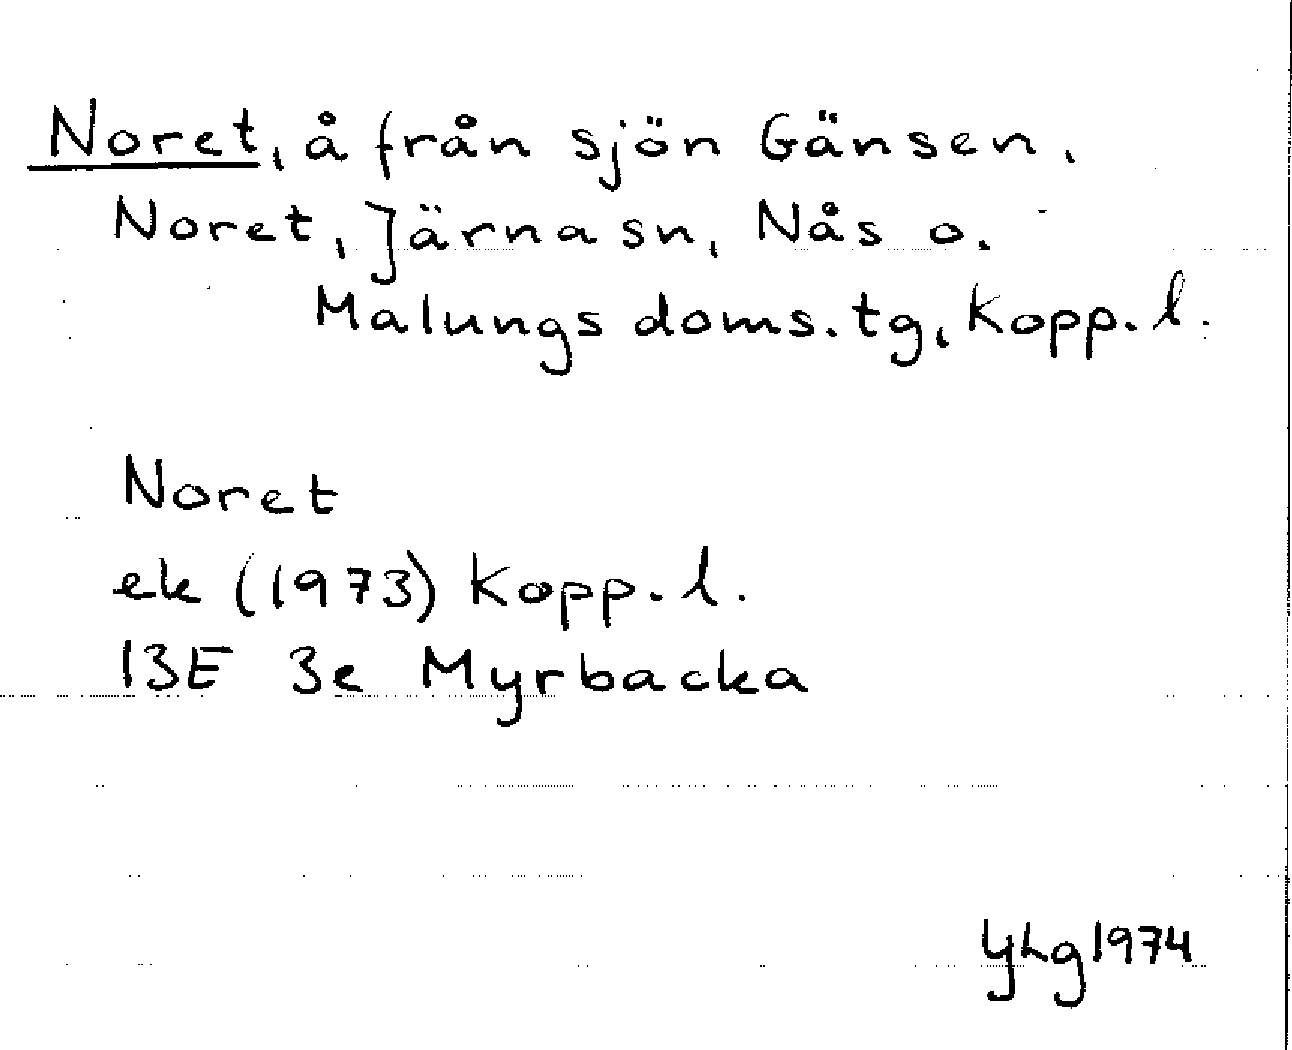 Noret, å från sjön Gänsen,
Noret, Järna sn, Nås o.
Malungs doms.tg, Kopp.l.
Noret
ek (1973) Kopp.l.
13E 3e Myrbacka
YLg 1974